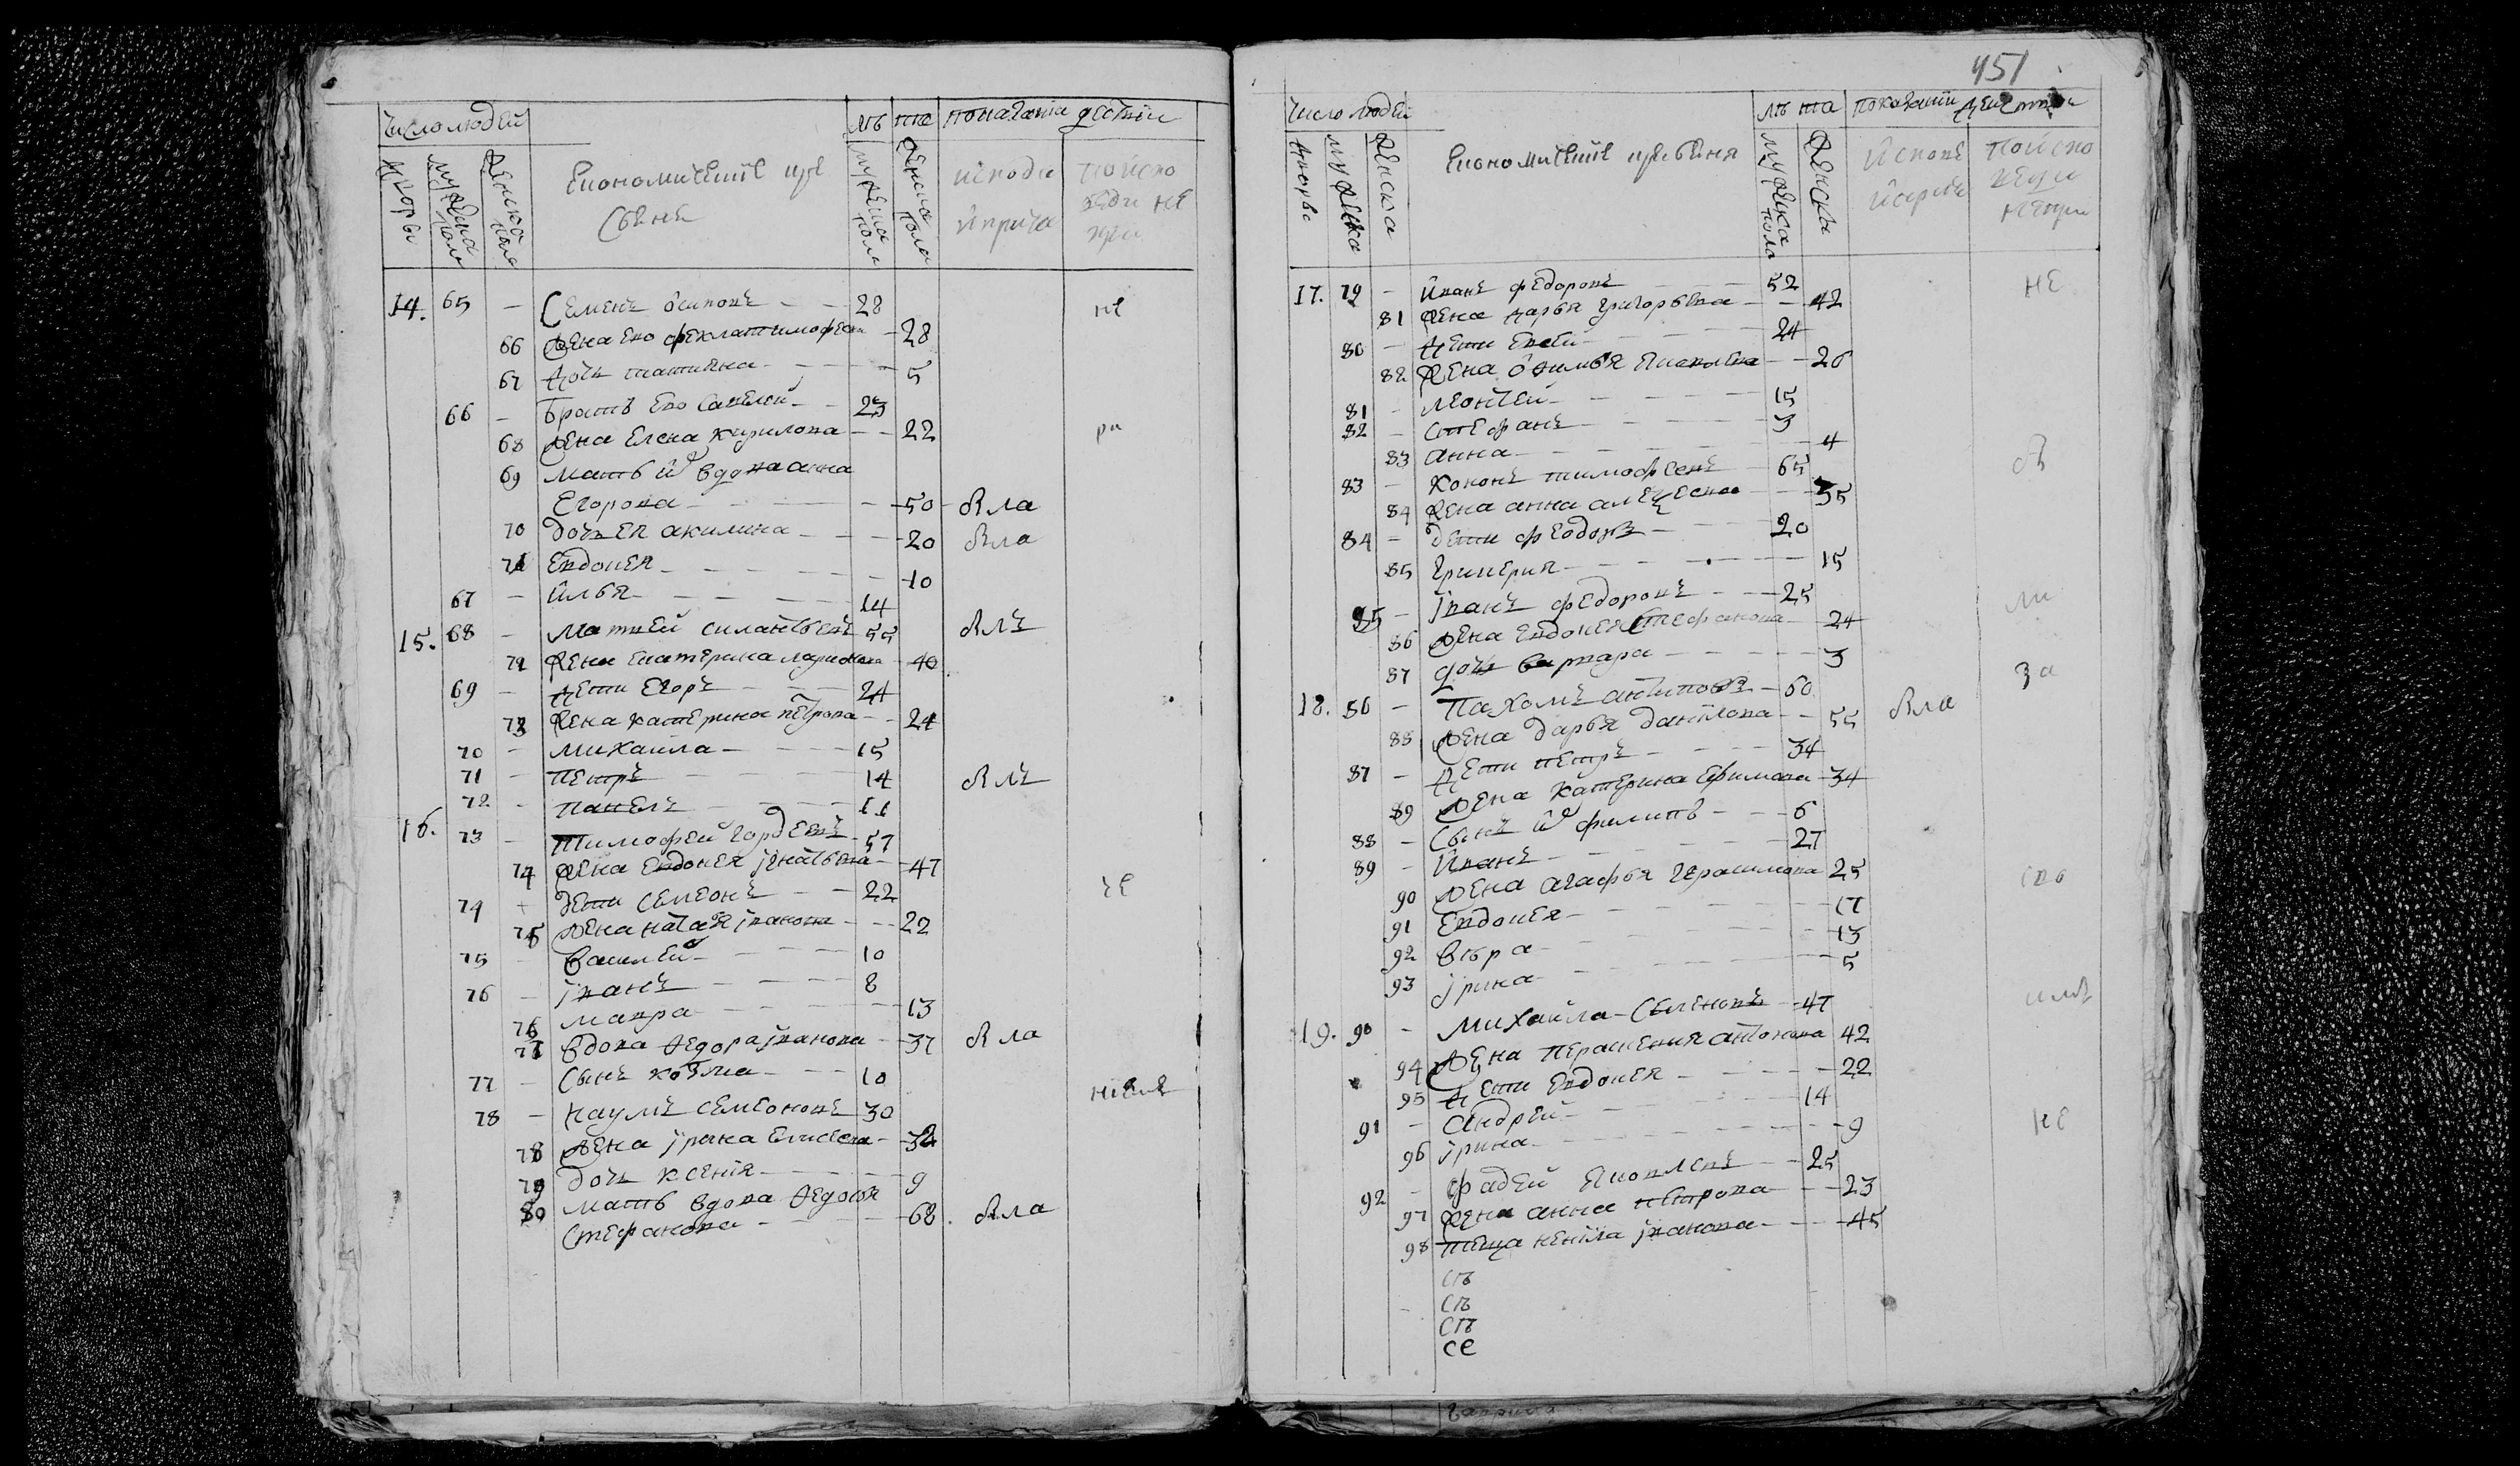 451
Число людей
лѣ та
показание дѣстви
Дворы
мужеска пола
женска пола
Економические кре
стьяне
мужеска пола
женска пола
исповѣ
и прича
по испо
веди не
при
14. 65 - Семенъ Осиповъ - - 28
66 жена ево Фекла Тимофеева - 28
67 дочь Татияна - 5
66 - братъ ево Савелей - - 23
68 жена Елена Кирилова - - 22
69 мать их вдова Анна
Егорова - - 50 - была
70 дочь ея Акилина - - 20 была
71 Евдокея - - 10
67 - Илья - - 14
15. 68 - Матвей Силантьевъ 55 былъ
72 жена Екатерина Ларионова - 40
69 - дети Егоръ - - 24
73 жена Катерина Петрова - - 24
70 - Михаила - - 15
71 - Петръ - - 14 былъ
72 - Павелъ - - 11
16. 73 - Тимофей Гордевъ - 57
74 жена Евдокея Игнатьева - 47
74 дети Семеонъ - - 22
75 жена Наталя Iванова - - 22
75 - Василей - 10
76 - Iванъ - - 8
76 Мавра - - 13
77 вдова Ѳедора Iванова - 37 была
77 - сынъ Козма - - 10
78 - Наумъ Семеоновъ 30
78 жена Iрина Елисеева - 32
79 дочь Ксения - - 9
80 мать вдова Ѳедосья
Стефанова - - 68. была
Число людей
лѣ та
показании действи
дворы
мужеска
женска
Економические крестьяня
мужеска пола
женски
и спове
по испо
веди
17. 79 - Иванъ Федоровъ 52
81 жена Дарья Григорьева - - 42
80 - дети Евсей - 24
82 жена Ѳ
81 - Леонтей - - 15
82 - Стефанъ - - 3
83 Анна - - 4
83 - Кононъ Тимофеевъ 65
84 жена Анна Алексеева - 55
84 - дети Феодоръ - 20
85 Гликерия - - 15
85 - Iванъ Федоровъ - - 25
86 жена Евдокея Стефанова - 24
87 дочь Варвара - - 3
18. 86 - Пахомъ Антиповъ - 60
88 жена Дарья Данилова - - 55 была
87 - дети Петръ - - 34
89 жена Катерина Ефимова - 34
88 - сынъ их Филипъ - - 6
89 - Иванъ - - 27
90 жена Агафья Герасимова 25
91 Евдокея - - 17
92 Вѣра - - 13
93 Iрина - - 5
19. 90 - Михаила Семеновъ - 47
94 жена Парасковия Антонова 42
95 дети Евдокея - - 22
91 - Андрей - - 14
96 Iрина - - 9
92 - Фадей Яковлевъ - - 25
97 жена Анна Петрова - - 23
98 теща Ненила Iванова - - 45